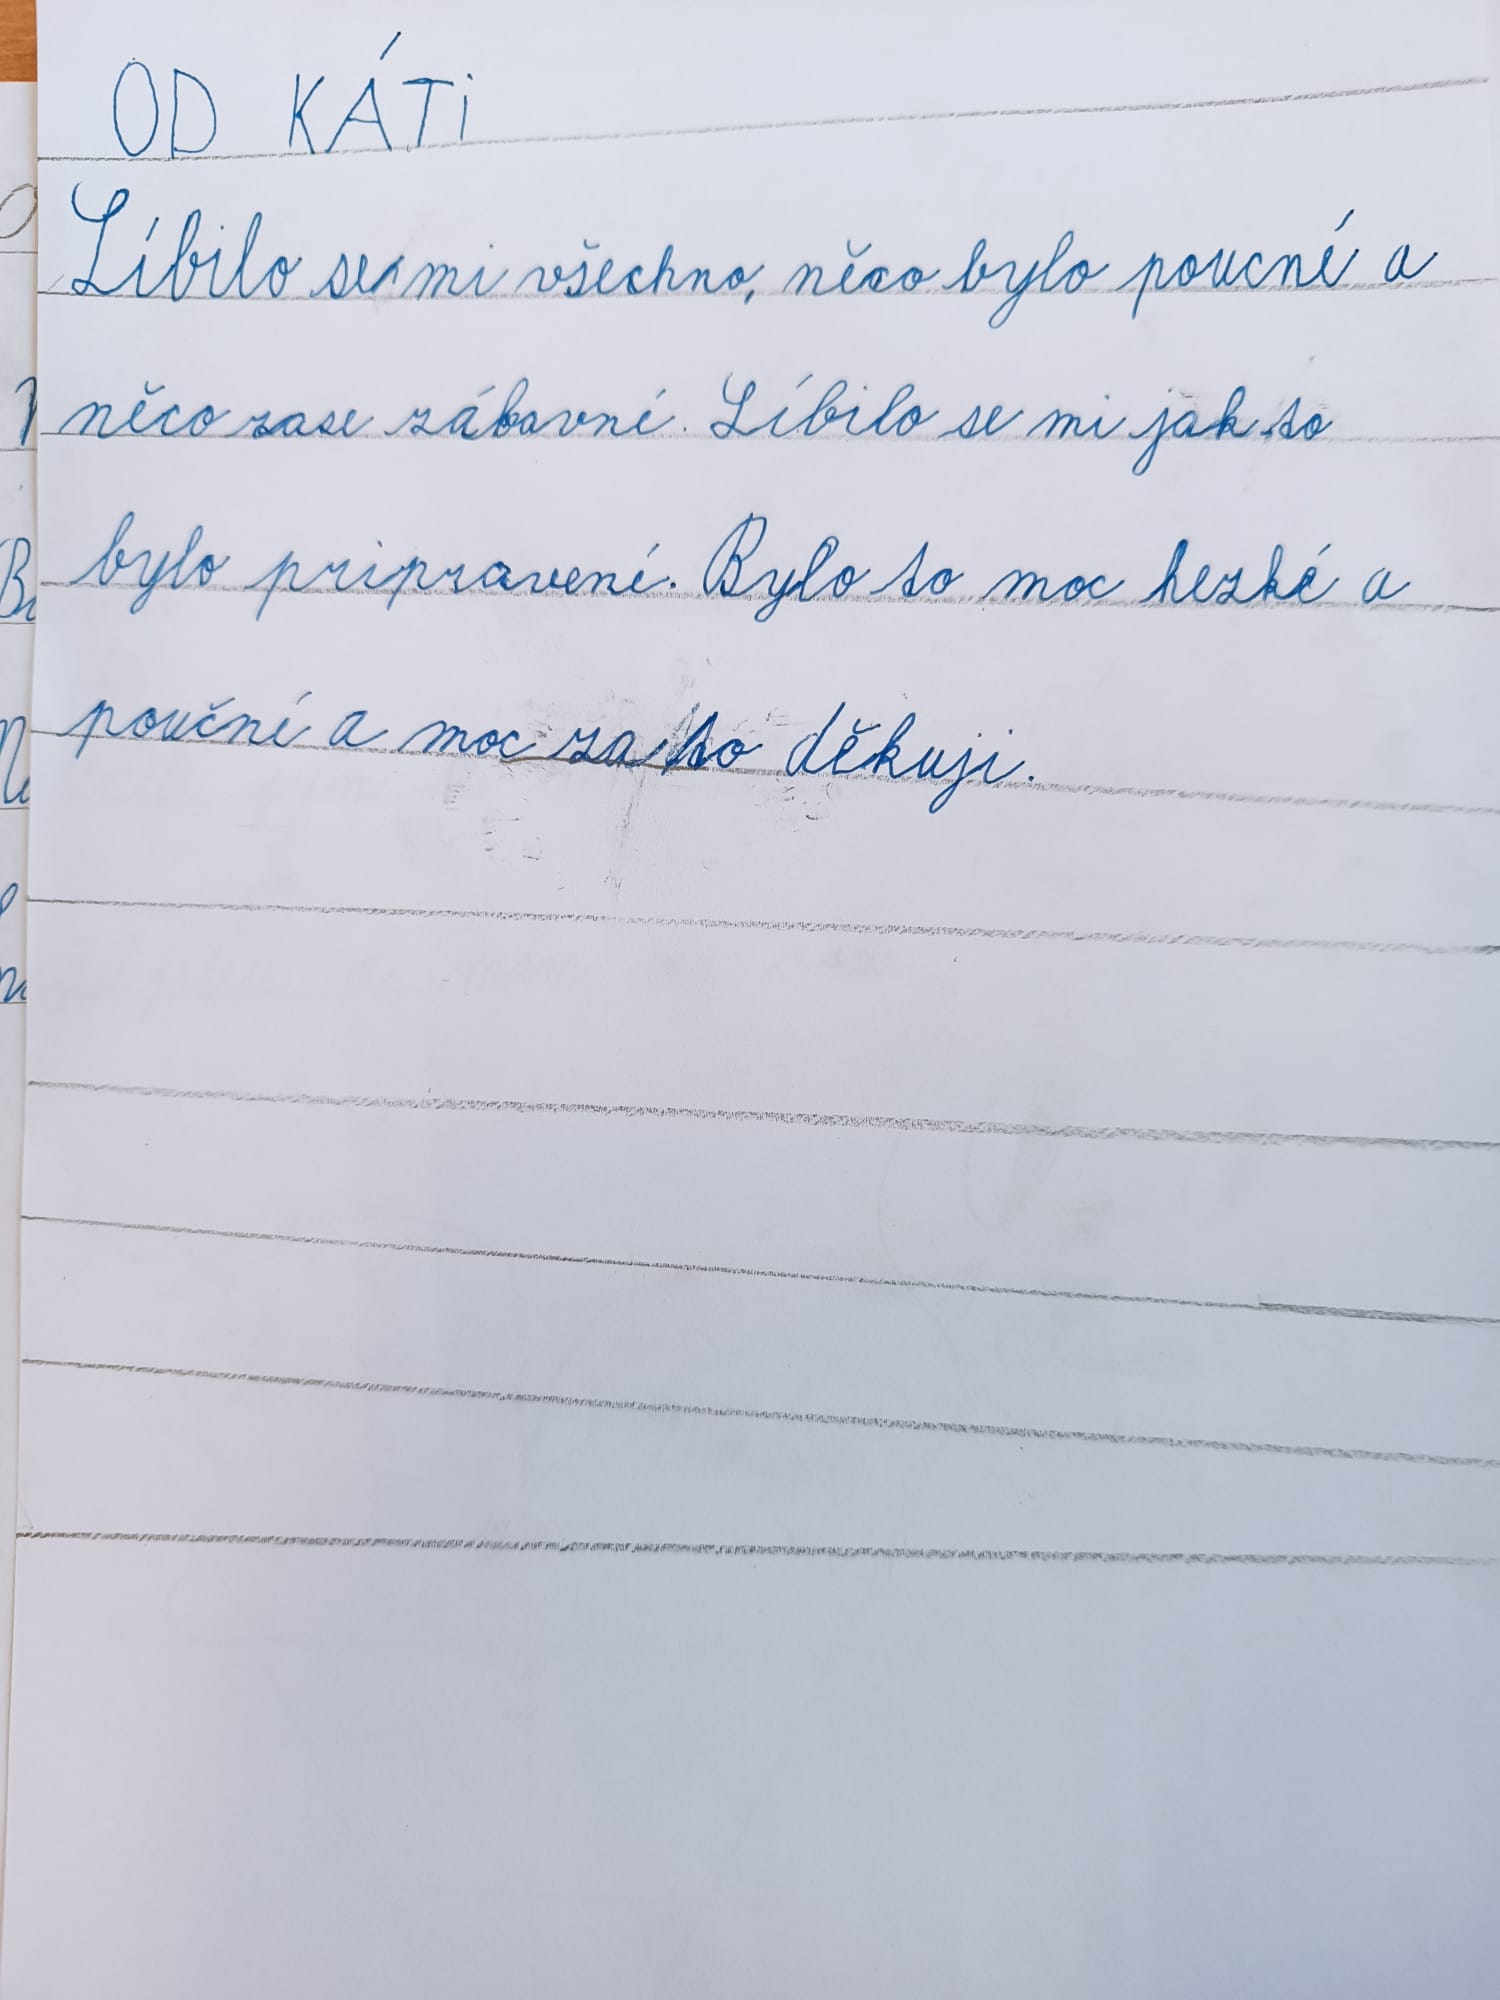 OD KÁTi
Líbilo se mi všechno, něco bylo poucné a
něco zase zábavné. Líbilo se mi jak to
bylo pripravené. Bylo to moc hezké a
poučné a moc za to děkuji.